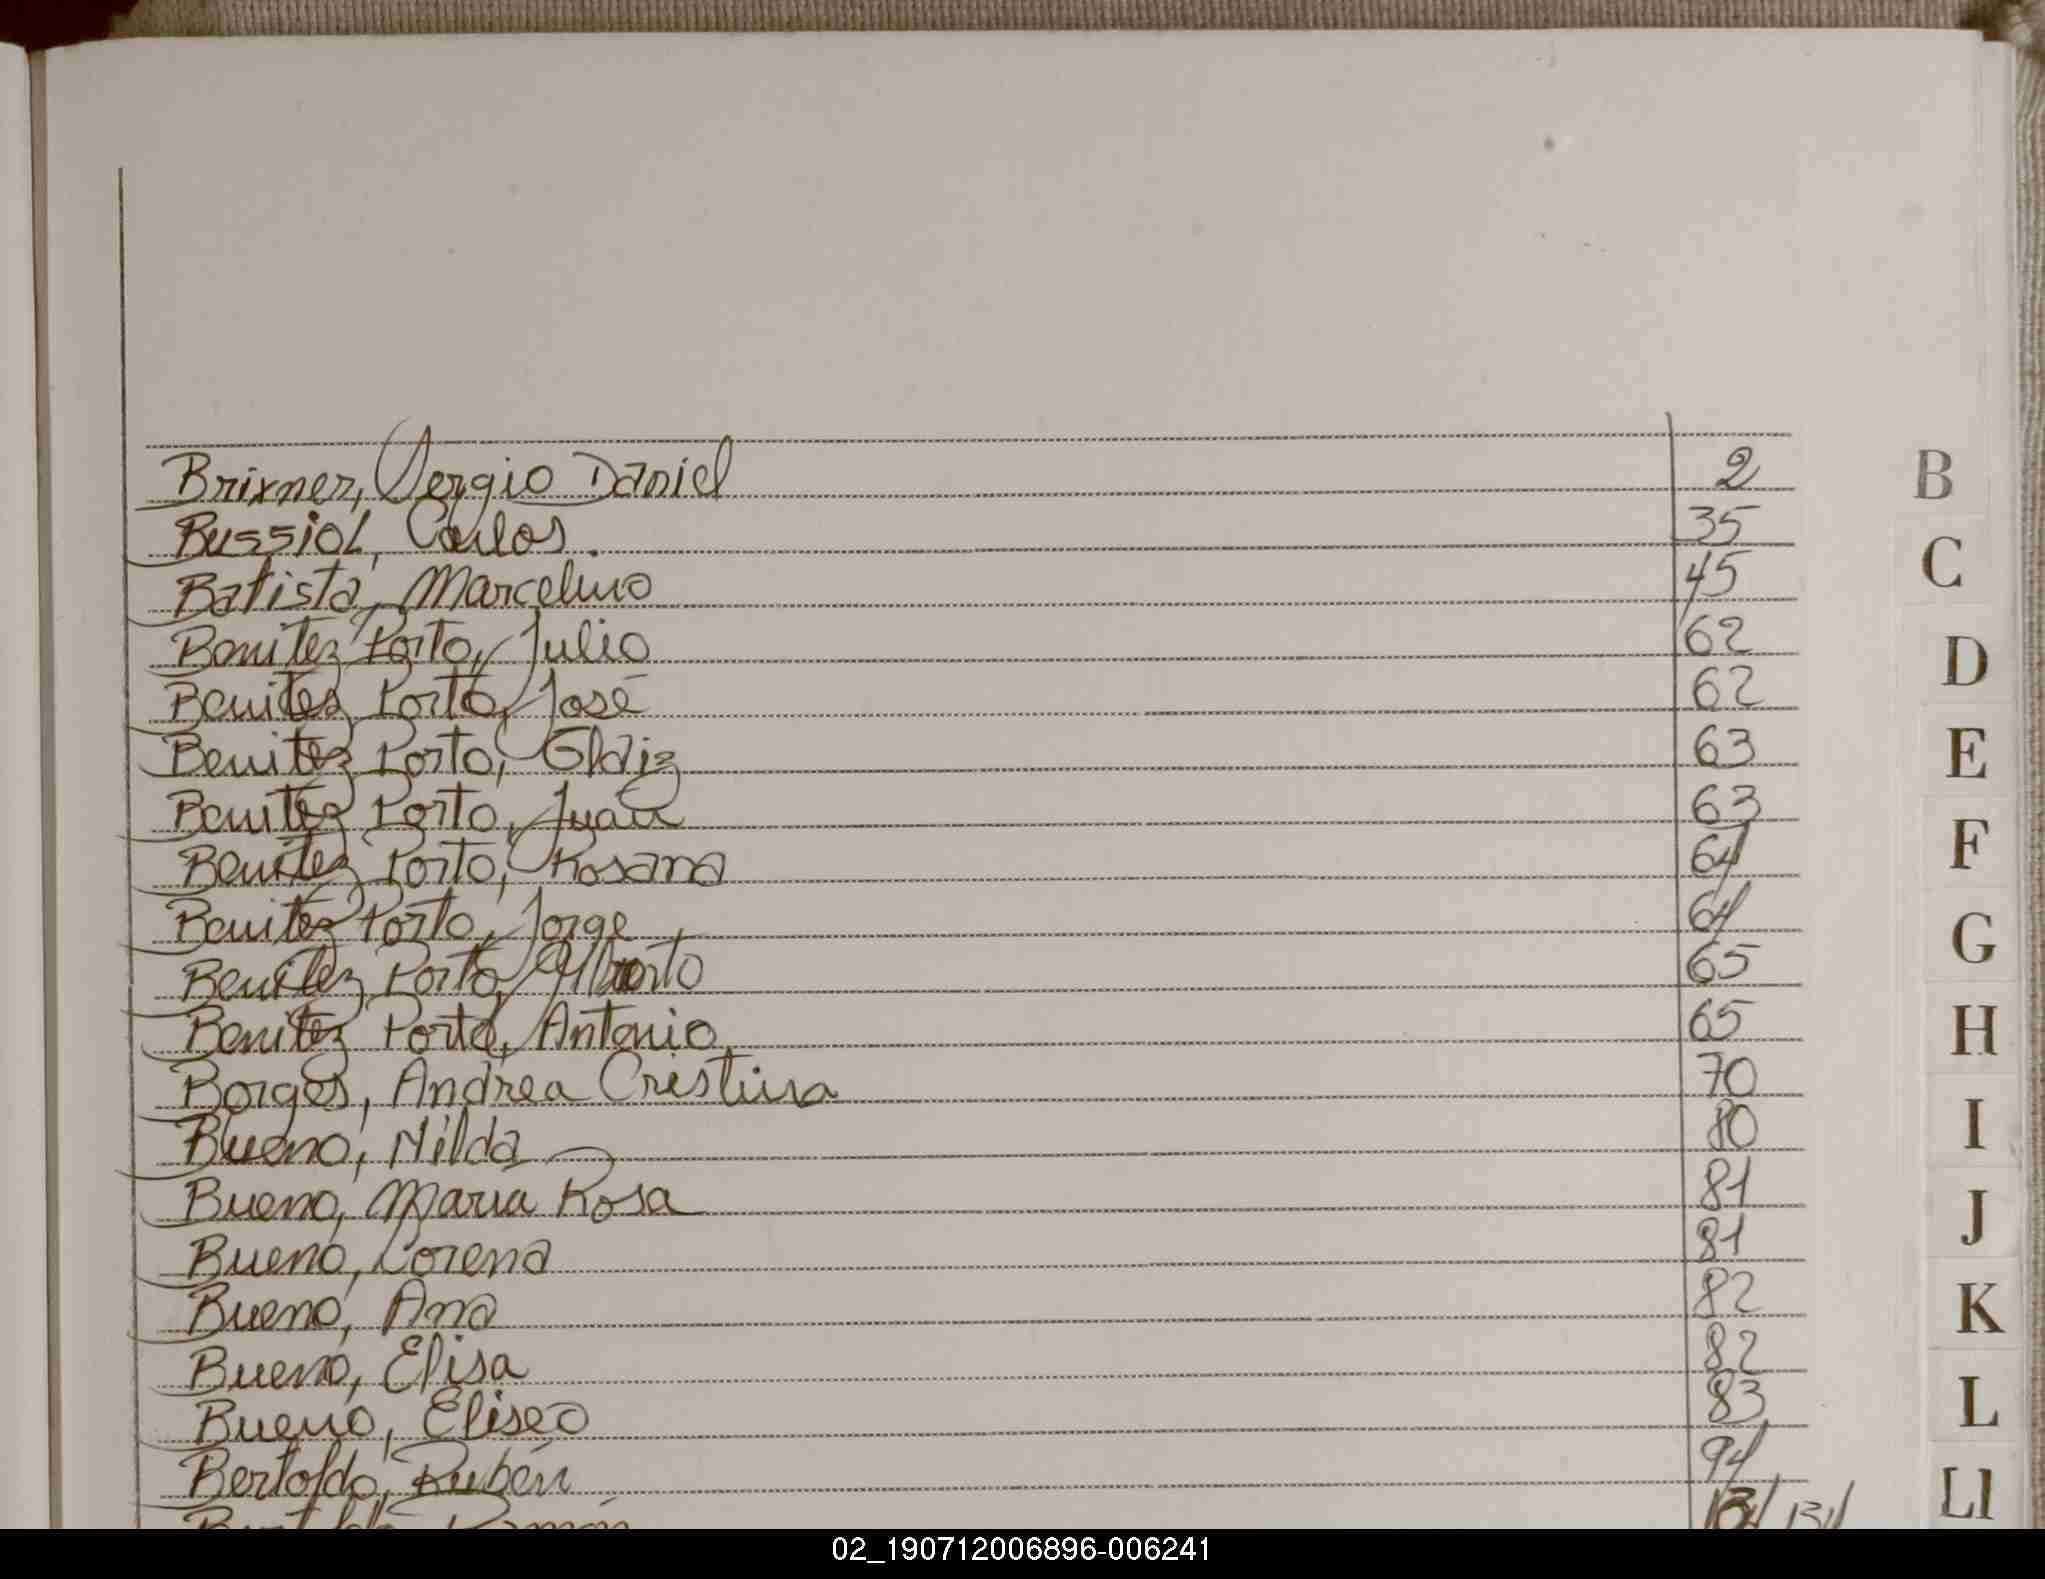 Brixner, Sergio Daniel 2
Bussiol, Carlos. 35
Batista, Marcelino 45
Benitez Porto, Julio 62
Benitez Porto, José 62
Benitez Porto, Gladiz 63
Benitez Porto, Juan 63
Benitez Porto, Rosana 64
Benitez Porto, Jorge 64
Benitez Porto, Alberto 65
Benitez Porto, Antonio 65
Borges, Andrea Cristina 70
Bueno, Nilda 80
Bueno, Maria Rosa 81
Bueno, Lorena 81
Bueno, Ana 82
Bueno, Elisa 82
Bueno, Eliseo 83
Bertoldo, Rubén 94
Ramón
B
C
D
E
F
G
H
I
J
K
L
Ll
02_190712006896-006241